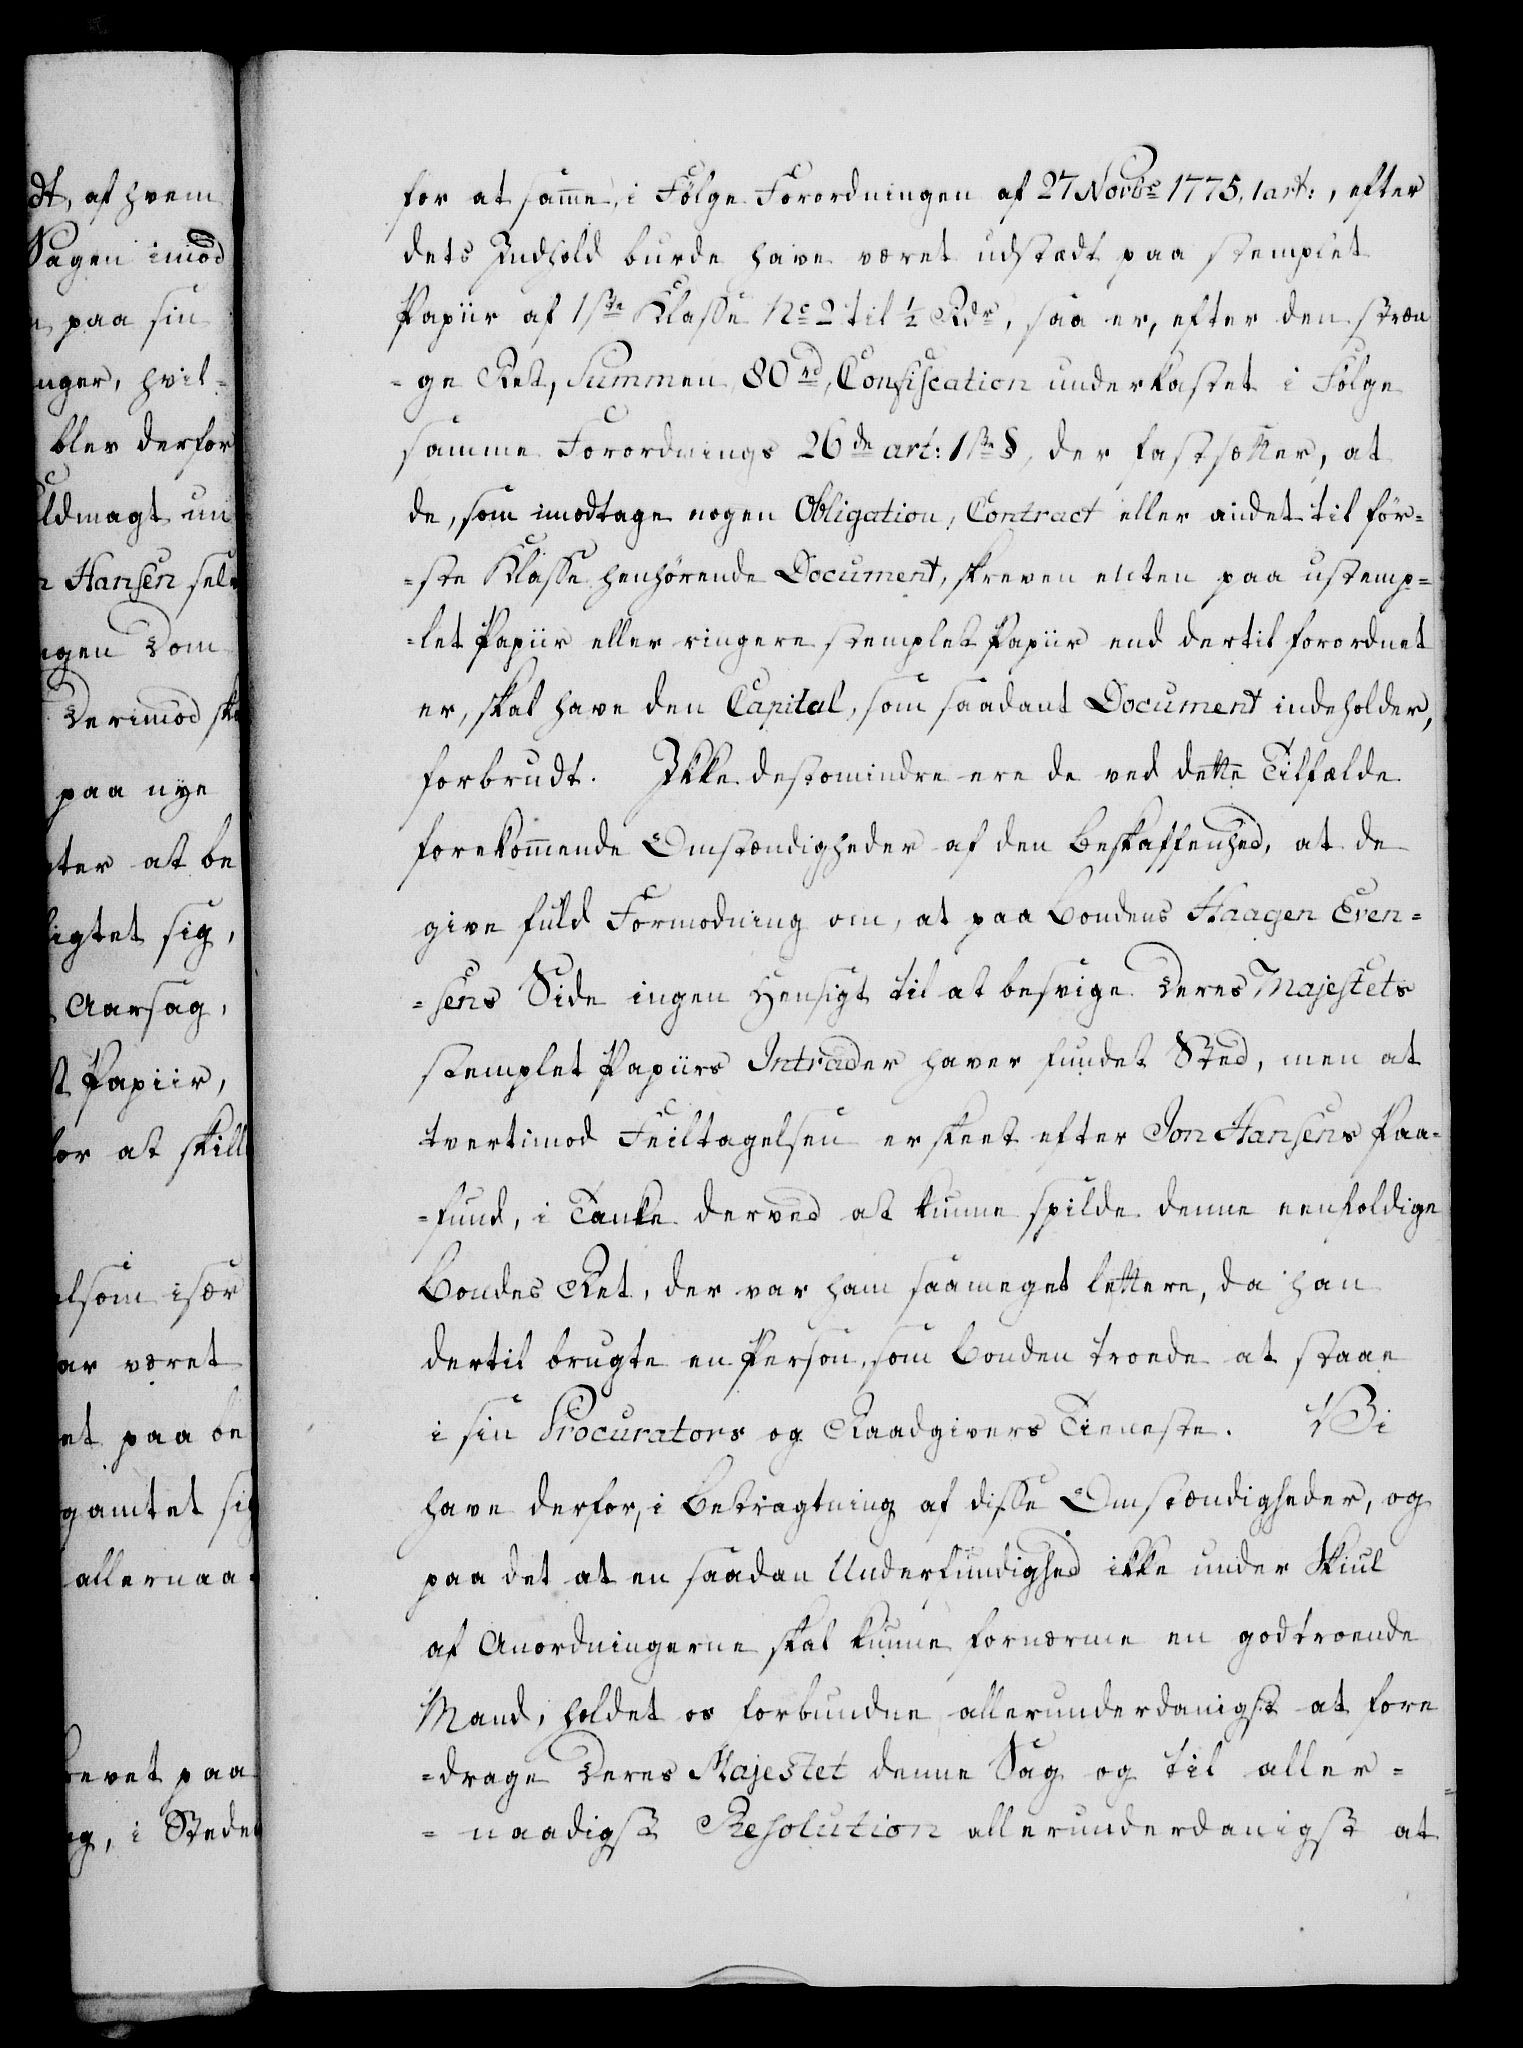 dt, af hvem
Sagen imod
paa sin
nger, hvil-
blev derfor
ldmagt un
n Hansen selv
ngen Dom
Derimod sk
paa nye
ter at be
igtet sig,
Aarsag,
t Papiir,
for at skill
elsom især
ar været
et paa be
gamtet si
allernaa
revet paa
g, i Stedet
for at same, i Følge Forordningen af 27 Novbr 1775, 1 art:, efter
dets Indhold burde have været udstædt paa stemplet
Papiir af 1ste Klasse No 2 til ½ Rdr, saa er, efter den stræn
-ge Ret, Summen 80 rd, Confiscation underkastet i Følge
samme Forordnings 26de art: 1ste §, der fastsætter, at
de, som imodtage nogen Obligation, Contract eller andet til før-
-ste Klasse henhørende Document, skreven enten paa ustemp-
-let Papiir eller ringere stemplet Papiir end dertil forordnet
er, skal have den Capital, som saadant Document indeholder,
forbrudt. Ikke destomindre ere de ved dette Tilfælde
forekommende Omstændigheder af den Beskaffenhed, at de
give fuld Formodning om, at paa Bondens Haagen Even-
-sens Side ingen Hensigt til at besvige Deres Majestets
stemplet Papiirs Intrader haver fundet Sted, men at
tvertimod Feiltagelsen er skeet efter Jon Hansens Paa-
-fund, i Tanke derved at kunne spilde denne eenfoldige
Bondes Ret, der var ham saameget lettere, da han
dertil brugte en Person, som Bonden troede at staae
i sin Procurators og Raadgivers Tieneste. Vi
have derfor, i Betragtning af disse Omstændigheder, og
paa det at en saadan Underfundighed ikke under Skiul
af Anordningerne skal kunne fornærme en godtroende
Mand, holdet os forbundne allerunderdanigst at fore
-drage Deres Majestet denne Sag og til aller-
-naadigst Resolution allerunderdanigst at